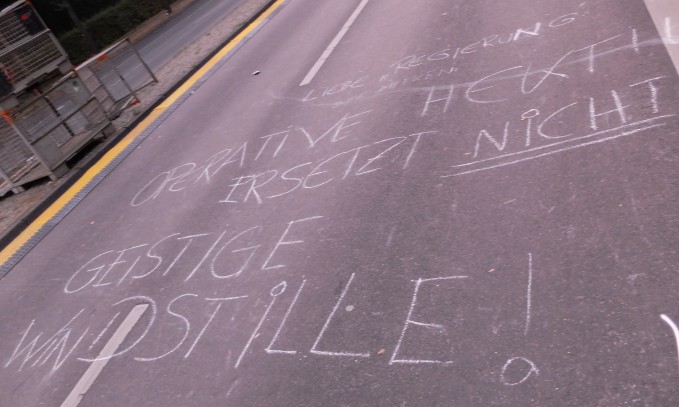 LIEBE "REGIERUNG"
OPERATIVE HEKTIK
ERSETZT NICHT
GEISTIGE
WINDSTILLE!